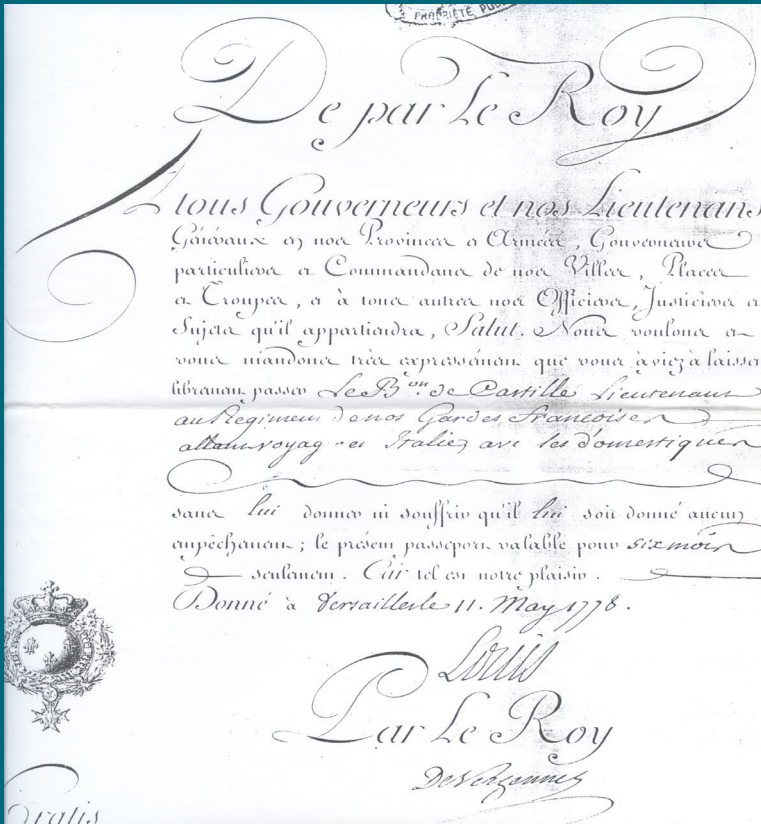 PROPRIÉTÉ PUB
De par Le Roy
A tous Gouverneurs et nos Lieutenans
Généraux en nos Provinces et Armées, Gouverneurs
particuliers et Commandans de nos Villes, Places
et Troupes, et à tous autres nos Officiers, Justiciers et
Sujets qu'il appartiendra, Salut. Nous voulons et
vous mandons très expressément que vous ayiez à laisser
librement passer Le B.on de Castille Lieutenant
au Régiment de nos Gardes Francoises
allant voyag en Italie, avec ses domestiques
sans lui donner ni souffrir qu'il lui soit donné aucun
empêchement ; le présent passeport valable pour six mois
seulement. Car tel est notre plaisir.
Donné à Versailles le 11. May 1778.
Louis
Par Le Roy
De Vergennes
Gratis